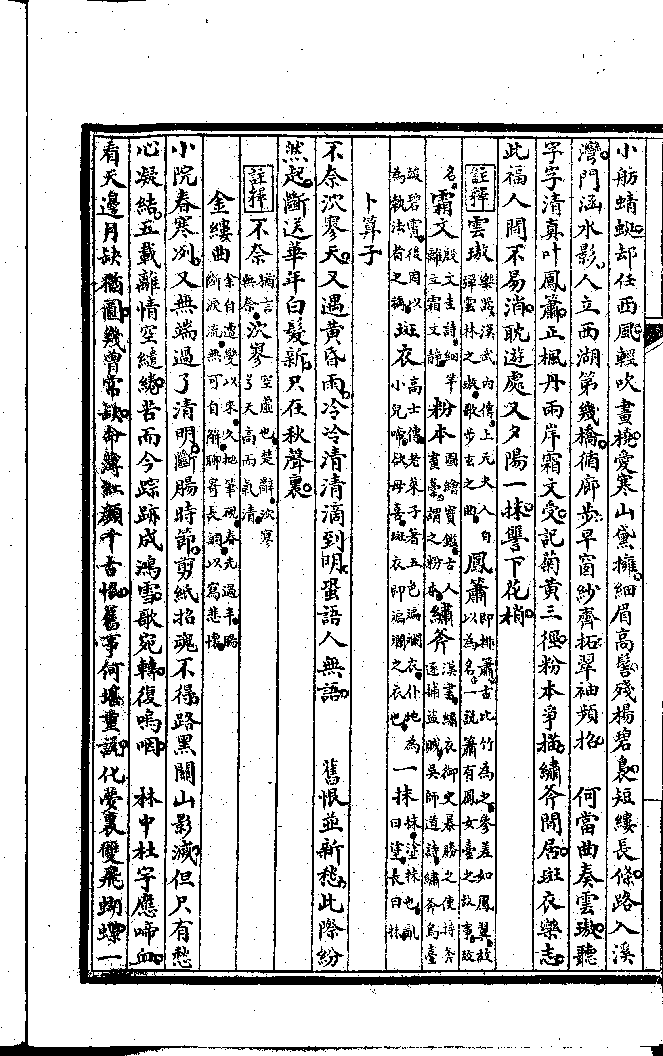 小舫蜻蜓却任西風輕吹畫橈愛寒山黛擁細眉高髻殘楊碧裊短縷長條路入溪
灣門涵水影人立西湖第幾橋循廊步早窗紗齊拓翠袖頻招　何當曲奏雲璈聽
字字清真叶鳳簫正楓丹兩岸霜文受記菊黃三徑粉本爭描繡斧閒居斑衣樂志
此福人間不易消耽遊處又夕陽一抹讐下花梢
註釋　雲璈樂器漢武內傳上元夫人自彈雲林之璈歌步玄之曲鳳簫即排簫古比竹為之參差如鳳翼故以為名一說簫有鳳女臺之故事故
名霜文殷文圭詩細筆雖立霜文靜粉本圖繪寶鑑古人畫藁謂之粉本繡斧漢書繡衣御史暴勝之使持斧逐捕盜賊吳師道詩繡斧烏臺
故碧霄後因以為執法者之稱斑衣高士傳老萊子著五色斑斕衣仆地為小兒啼以娛母喜斑衣即斑斕之衣也一抹抹塗抹也亂曰塗長曰抹
卜算子
不奈泬寥天又遇黃昏雨冷冷清清滴到明蛩語人無語　舊恨並新愁此際紛
然起斷送華年白髮新只在秋聲裏
註釋　不奈猶言無奈泬寥空虛也楚辭泬寥兮天高而氣清
金縷曲余自遭變以來久拋筆硯春光過半腸斷淚流無可自解聊寄長調以寫悲懷
小院春寒冽又無端過了清明斷腸時節剪紙招魂不得路黑關山影滅但只有愁
心凝結五載離情空繾綣苦而今踪跡成鴻雪歌宛轉復嗚咽　林中杜宇應啼血
看天邊月缺猶圓幾曾常缺命薄紅顏千古恨舊事何堪重說化夢裏雙飛蝴蝶一